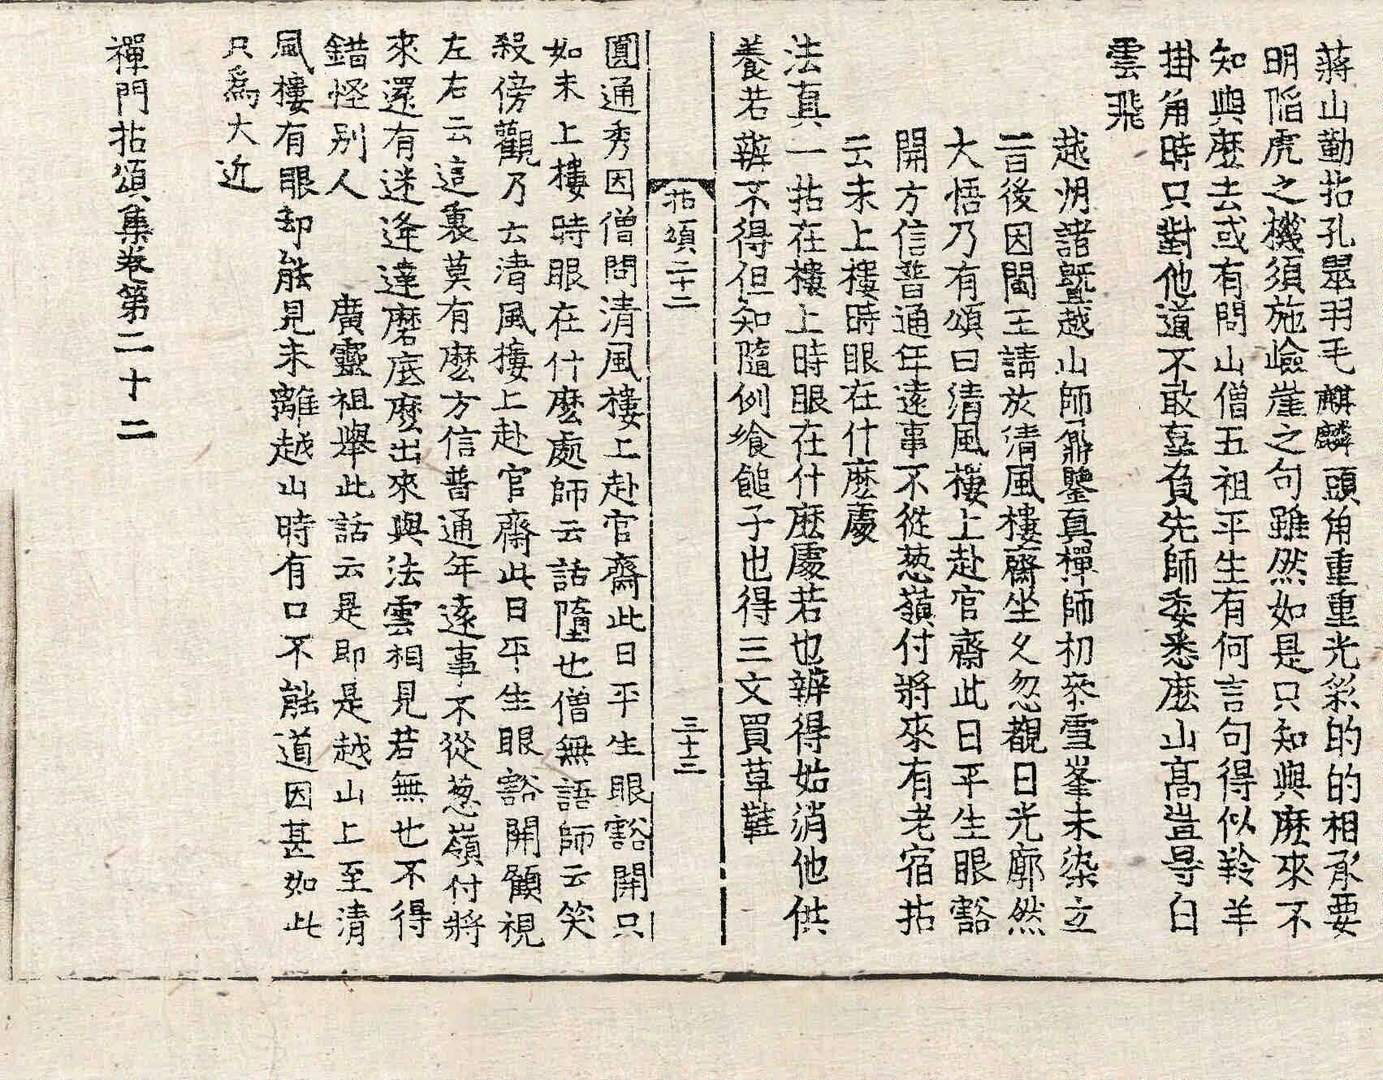 蔣山勤拈孔翠羽毛麒麟頭角重重光彩的的相承要
明陷虎之機須施嶮崖之句雖然如是只知與麽來不
知與麽去或有問山僧五祖平生有何言句得似羚羊
掛角時只對他道不敢辜負先師委悉麽山高豈㝵白
雲飛
越州諸曁越山師鼐鑒真禪師初叅雪峯未染立
旨後因閩王請於清風樓齋坐久忽覩日光廓然
大悟乃有頌曰清風樓上赴官齋此日平生眼豁
開方信普通年遠事不從葱嶺付將來有老宿拈
云未上樓時眼在什麽處
法真一拈在樓上時眼在什麽處若也辨得始消他供
養若辨不得但知隨例飡𩜶子也得三文買草鞋
拈頌二十二
三十三
圓通秀因僧問清風樓上赴官齋此日平生眼豁開只
如未上樓時眼在什麽處師云話墮也僧無語師云笑
殺傍觀乃云清風樓上赴官齋此日平生眼豁開顧視
左右云這裏莫有麽方信普通年遠事不從葱嶺付將
來還有迷逢達磨底麽出來與法雲相見若無也不得
錯怪别人
廣靈祖舉此話云是即是越山上至清
風樓有眼却能見未離越山時有口不能道因甚如此
只爲大近
禪門拈頌集卷第二十二